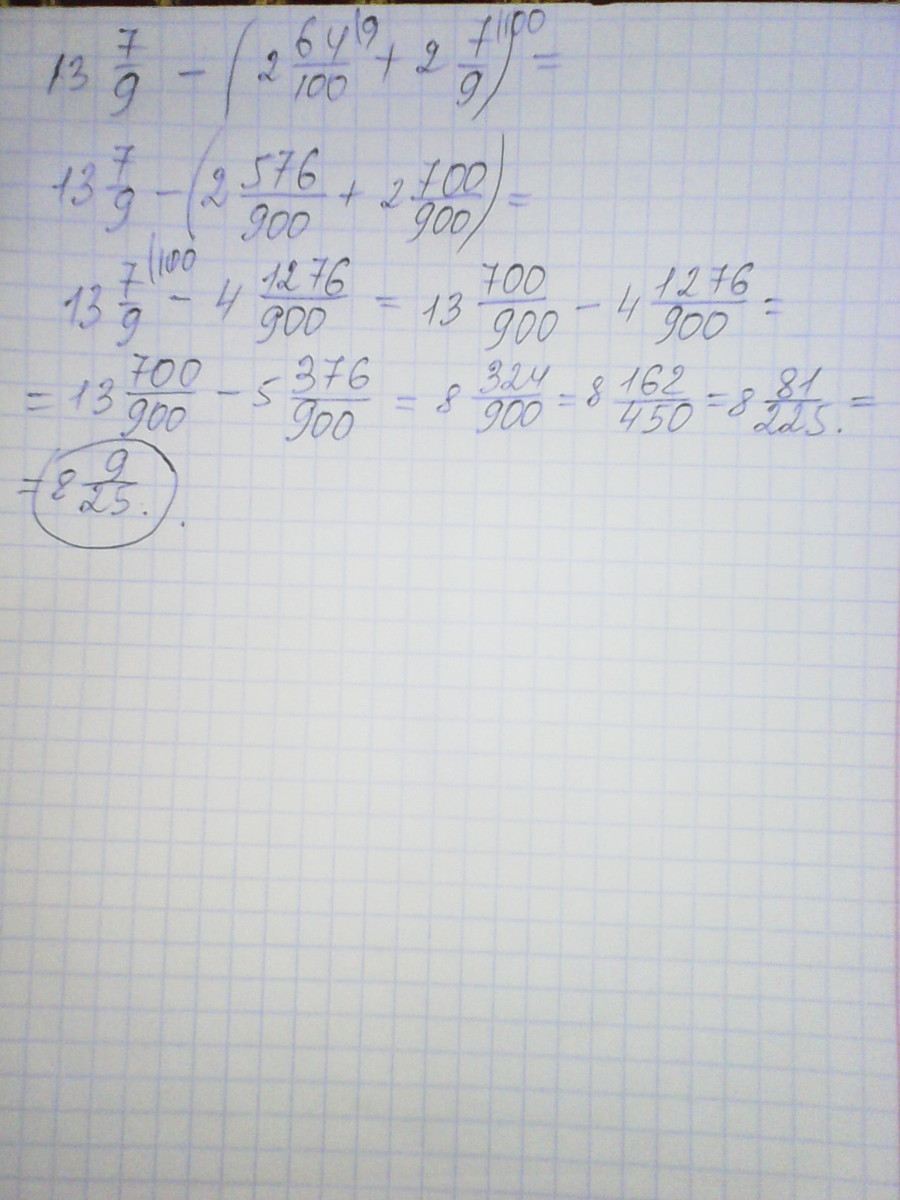 13 7/9 - (2 64/100 |9 + 2 7/9 |100) =
13 7/9 - (2 576/900 + 2 700/900) =
13 7/9 |100 - 4 1276/900 = 13 700/900 - 4 1276/900 =
= 13 700/900 - 5 376/900 = 8 324/900 = 8 162/450 = 8 81/225. =
= 8 9/25. .